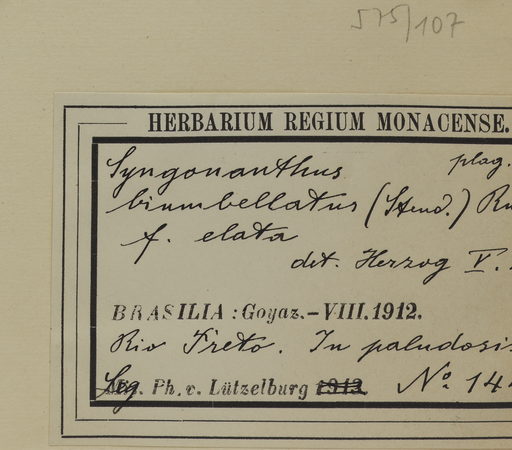 575/107
HERBARIUM REGIUM MONACENSE.
Syngonanthus plag.
biumbellatus (Steud.) Ru
f. elata
det. Herzog V.
BRASILIA: Goyaz.-VIII.1912.
Rio Preto. In paludosis
Leg. Ph. v. Lützelburg 1912 No 14